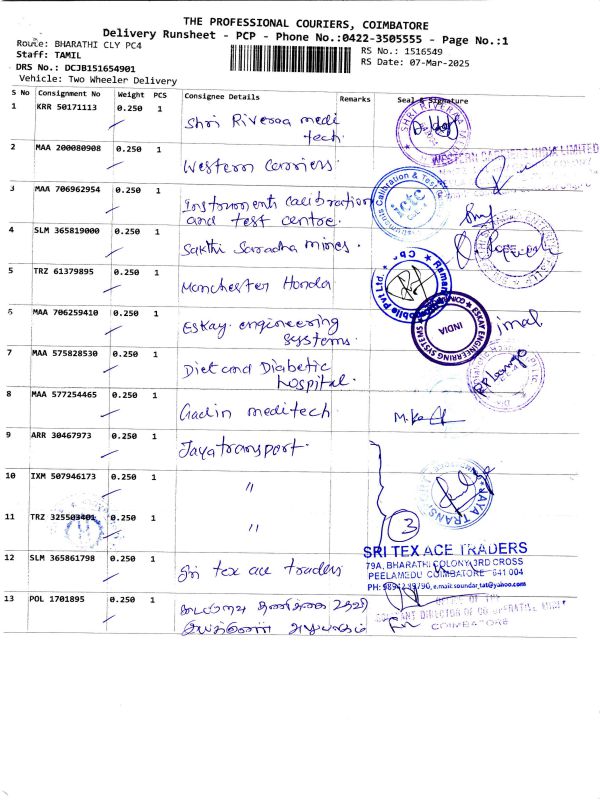 THE PROFESSIONAL COURIERS, COIMBATORE
Delivery Runsheet - PCP - Phone No.:0422-3505555 - Page No.:1
Route: BHARATHI CLY PC4
RS No.: 1516549
Staff: TAMIL
RS Date: 07-Mar-2025
DRS No.: DCJB151654901
Vehicle: Two Wheeler Delivery
S No Consignment No Weight PCS Consignee Details Remarks Seal & Signature
1 KRR 50171113 0.250 1 Shri Riveraa medi
tech.
2 MAA 200080908 0.250 1 Western Carriers.
WESTERN CARRIERS INDIA LIMITED
3 MAA 706962954 0.250 1 Instruments calibration
and test centre.
ictc
4 SLM 365819000 0.250 1 Sakthi Saradha mines.
5 TRZ 61379895 0.250 1 Manchester Honda
6 MAA 706259410 0.250 1 Eskay engineering
systems.
ESKAY ENGINEERING SYSTEMS
INDIA
7 MAA 575828530 0.250 1 Diet and Diabetic
hospital.
8 MAA 577254465 0.250 1 Gadin meditech.
9 ARR 30467973 0.250 1 Jaya transport.
10 IXM 507946173 0.250 1 "
JAYA TRANS
11 TRZ 325503401 0.250 1 "
3
12 SLM 365861798 0.250 1 Sri tex ace traders
SRI TEX ACE TRADERS
79A, BHARATHI COLONY 3RD CROSS
PEELAMEDU COIMBATORE 641 004
e.mail: soundar_tat@yahoo.com
13 POL 1701895 0.250 1
OFFICE OF THE
DIRECTOR OF CO-OPERATIVE AUDIT
COIMBATORE